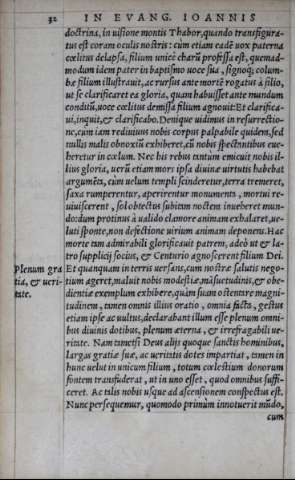 32 IN EVANG. IOANNIS
doctrina, in uisione montis Thabor, quando transfigura-
tus est coram oculis nostris: cum etiam eadē uox paterna
cœlitus delapsa, filium unicè charū professa est, quemad-
modum idem pater in baptismo uoce sua, signoq; colum-
bæ filium illustrauit, ac rursus ante mortē rogatus à filio,
ut se clarificaret ea gloria, quam habuisset ante mundum
conditū, uoce cœlitus demissa filium agnouit: Et clarifica-
ui, inquit, & clarificabo. Denique uidimus in resurrectio-
ne, cum iam rediuiuus nobis corpus palpabile quidem, sed
nullis malis obnoxiū exhiberet, cū nobis spectantibus eue-
heretur in cœlum. Nec his rebus tantum emicuit nobis il-
lius gloria, uerū etiam mors ipsa diuinæ uirtutis habebat
argumēta, cùm uelum templi scinderetur, terra tremeret,
saxa rumperentur, aperirentur monumenta, mortui re-
uiuiscerent, sol obtectus subitam noctem inueheret mun-
do: dum protinus à ualido clamore animam exhalaret, ue-
lut sponte, non defectione uirium animam deponens. Hac
morte tam admirabili glorificauit patrem, adeò ut & la-
tro supplicij socius, & Centurio agnoscerent filium Dei.
Plenum gra Et quanquam in terris uersans, cum nostræ salutis nego-
tia, & ueri- tium ageret, maluit nobis modestiæ, māsuetudinis, & obe-
tate. dientiæ exemplum exhibere, quàm suam ostentare magni-
tudinem, tamen omnis illius oratio, omnia facta, gestus
etiam ipse ac uultus, declarabant illum esse plenum omni-
bus diuinis dotibus, plenum æterna, & irrefragabili ue-
ritate. Nam tametsi Deus alijs quoque sanctis hominibus,
largas gratiæ suæ, ac ueritatis dotes impartiat, tamen in
hunc uelut in unicum filium, totum cœlestium donorum
fontem transfuderat, ut in uno esset, quod omnibus suffi-
ceret. Ac talis nobis usque ad ascensionem conspectus est.
Nunc persequemur, quomodo primùm innotuerit mūdo,
cum